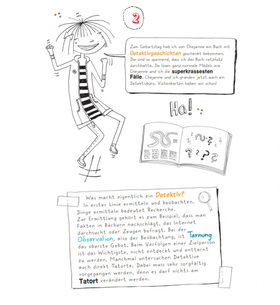 2
Zum Geburtstag hab ich von Cheyenne ein Buch mit
Detektivgeschichten geschenkt bekommen.
Die sind so spannend, dass ich das Buch ratzfatz
durchhatte. Da lösen ganz normale Mädels wie
Cheyenne und ich die superkrassesten
Fälle. Cheyenne und ich gründen jetzt auch ein
Detektivbüro. Visitenkarten haben wir schon!
Ha!
Was macht eigentlich ein Detektiv?
In erster Linie ermitteln und beobachten.
Dinge ermitteln bedeutet Recherche.
Zur Ermittlung gehört es zum Beispiel, dass man
Fakten in Büchern nachschlägt, das Internet
durchsucht oder Zeugen befragt. Bei der
Observation, also der Beobachtung, ist Tarnung
das oberste Gebot. Beim Verfolgen einer Zielperson
ist das Wichtigste, nicht entdeckt und enttarnt
zu werden. Manchmal untersuchen Detektive
auch direkt Tatorte. Dabei muss sehr sorgfältig
vorgegangen werden, denn es darf nichts am
Tatort verändert werden.